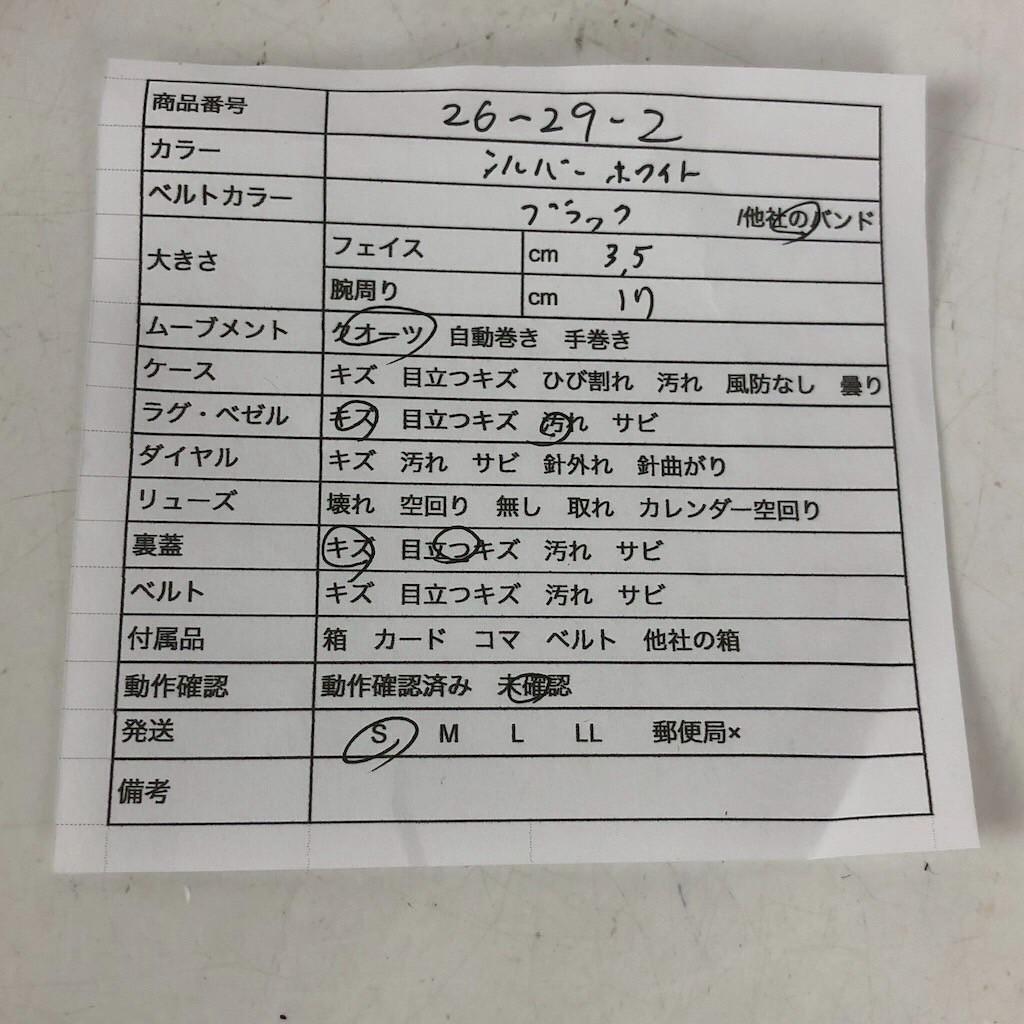 商品番号 26-29-2
カラー シルバー ホワイト
ベルトカラー ブラック /他社のバンド
大きさ フェイス cm 3.5
腕周り cm 17
ムーブメント クオーツ 自動巻き 手巻き
ケース キズ 目立つキズ ひび割れ 汚れ 風防なし 曇り
ラグ・ベゼル キズ 目立つキズ 汚れ サビ
ダイヤル キズ 汚れ サビ 針外れ 針曲がり
リューズ 壊れ 空回り 無し 取れ カレンダー空回り
裏蓋 キズ 目立つキズ 汚れ サビ
ベルト キズ 目立つキズ 汚れ サビ
付属品 箱 カード コマ ベルト 他社の箱
動作確認 動作確認済み 未確認
発送 S M L LL 郵便局×
備考